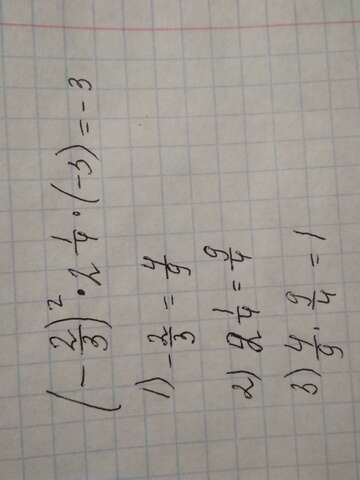 (-2/3)² · 2 1/4 · (-3) = -3
1) -2/3 = 4/9
2) 2 1/4 = 9/4
3) 4/9 · 9/4 = 1